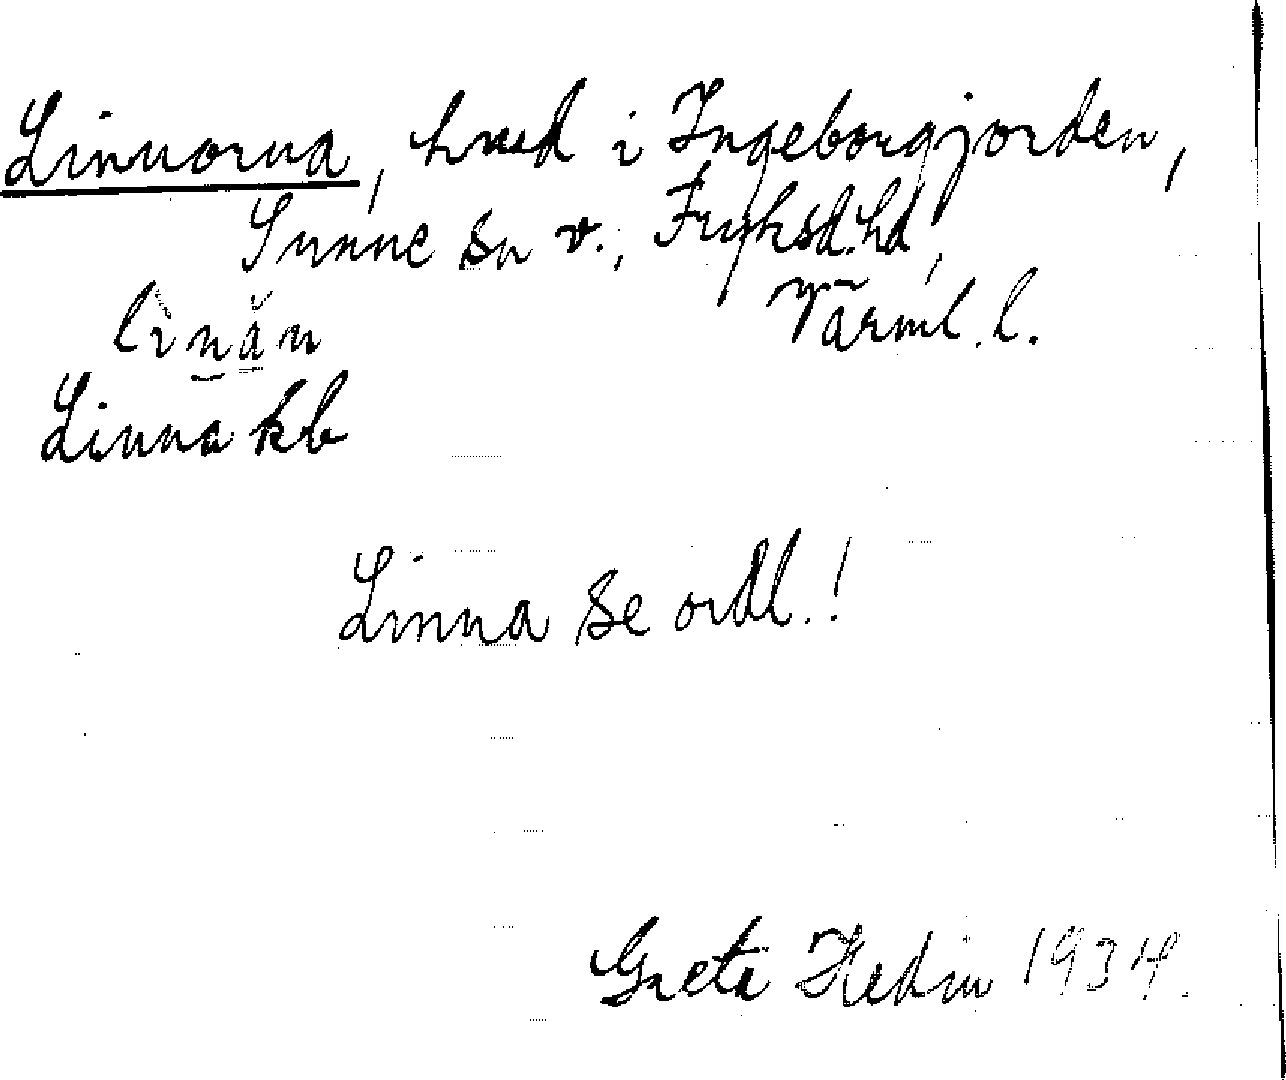 Linnorna, hmd i Ingeborgjorden,
Sunne sn v., Fryksd. hd,
Värml. l.
lìnăn
Linna kb
Linna se ordl.!
Greta Hedin 1934.